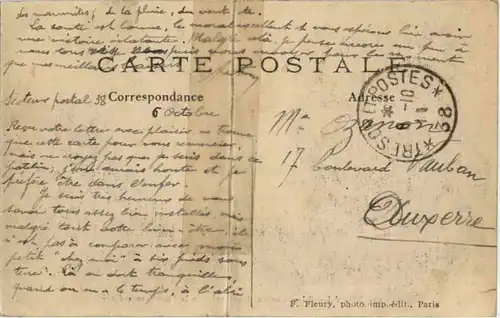 des marmites, de la pluie, du vent etc.
La santé est bonne, le moral excellent & nous espérons bien avoir
une victoire éclatante. Malgré cela, je pense encore un peu à
vous tous
que mes meilleurs
CARTE POSTALE
Secteur postal 38
Correspondance
Adresse
6 octobre
TRESOR ET POSTES
38
Reçu votre lettre avec plaisir, ne trouve
que cette carte pour vous remercier,
mais ne croyez pas que je suis dans ce
patelin, j'en aurais honte et je
préfère être dans l'enfer.
Je suis très heureux de vous
savoir tous assez bien installés, mais
malgré tout votre bien-être, il
n'est pas à comparer avec mon
petit "chez moi" à six pieds sous
terre. Là on dort tranquille
quand on en a le temps, à l'abri
17 boulevard Vauban
Auxerre
F. Fleury, photo.-imp.-édit., Paris